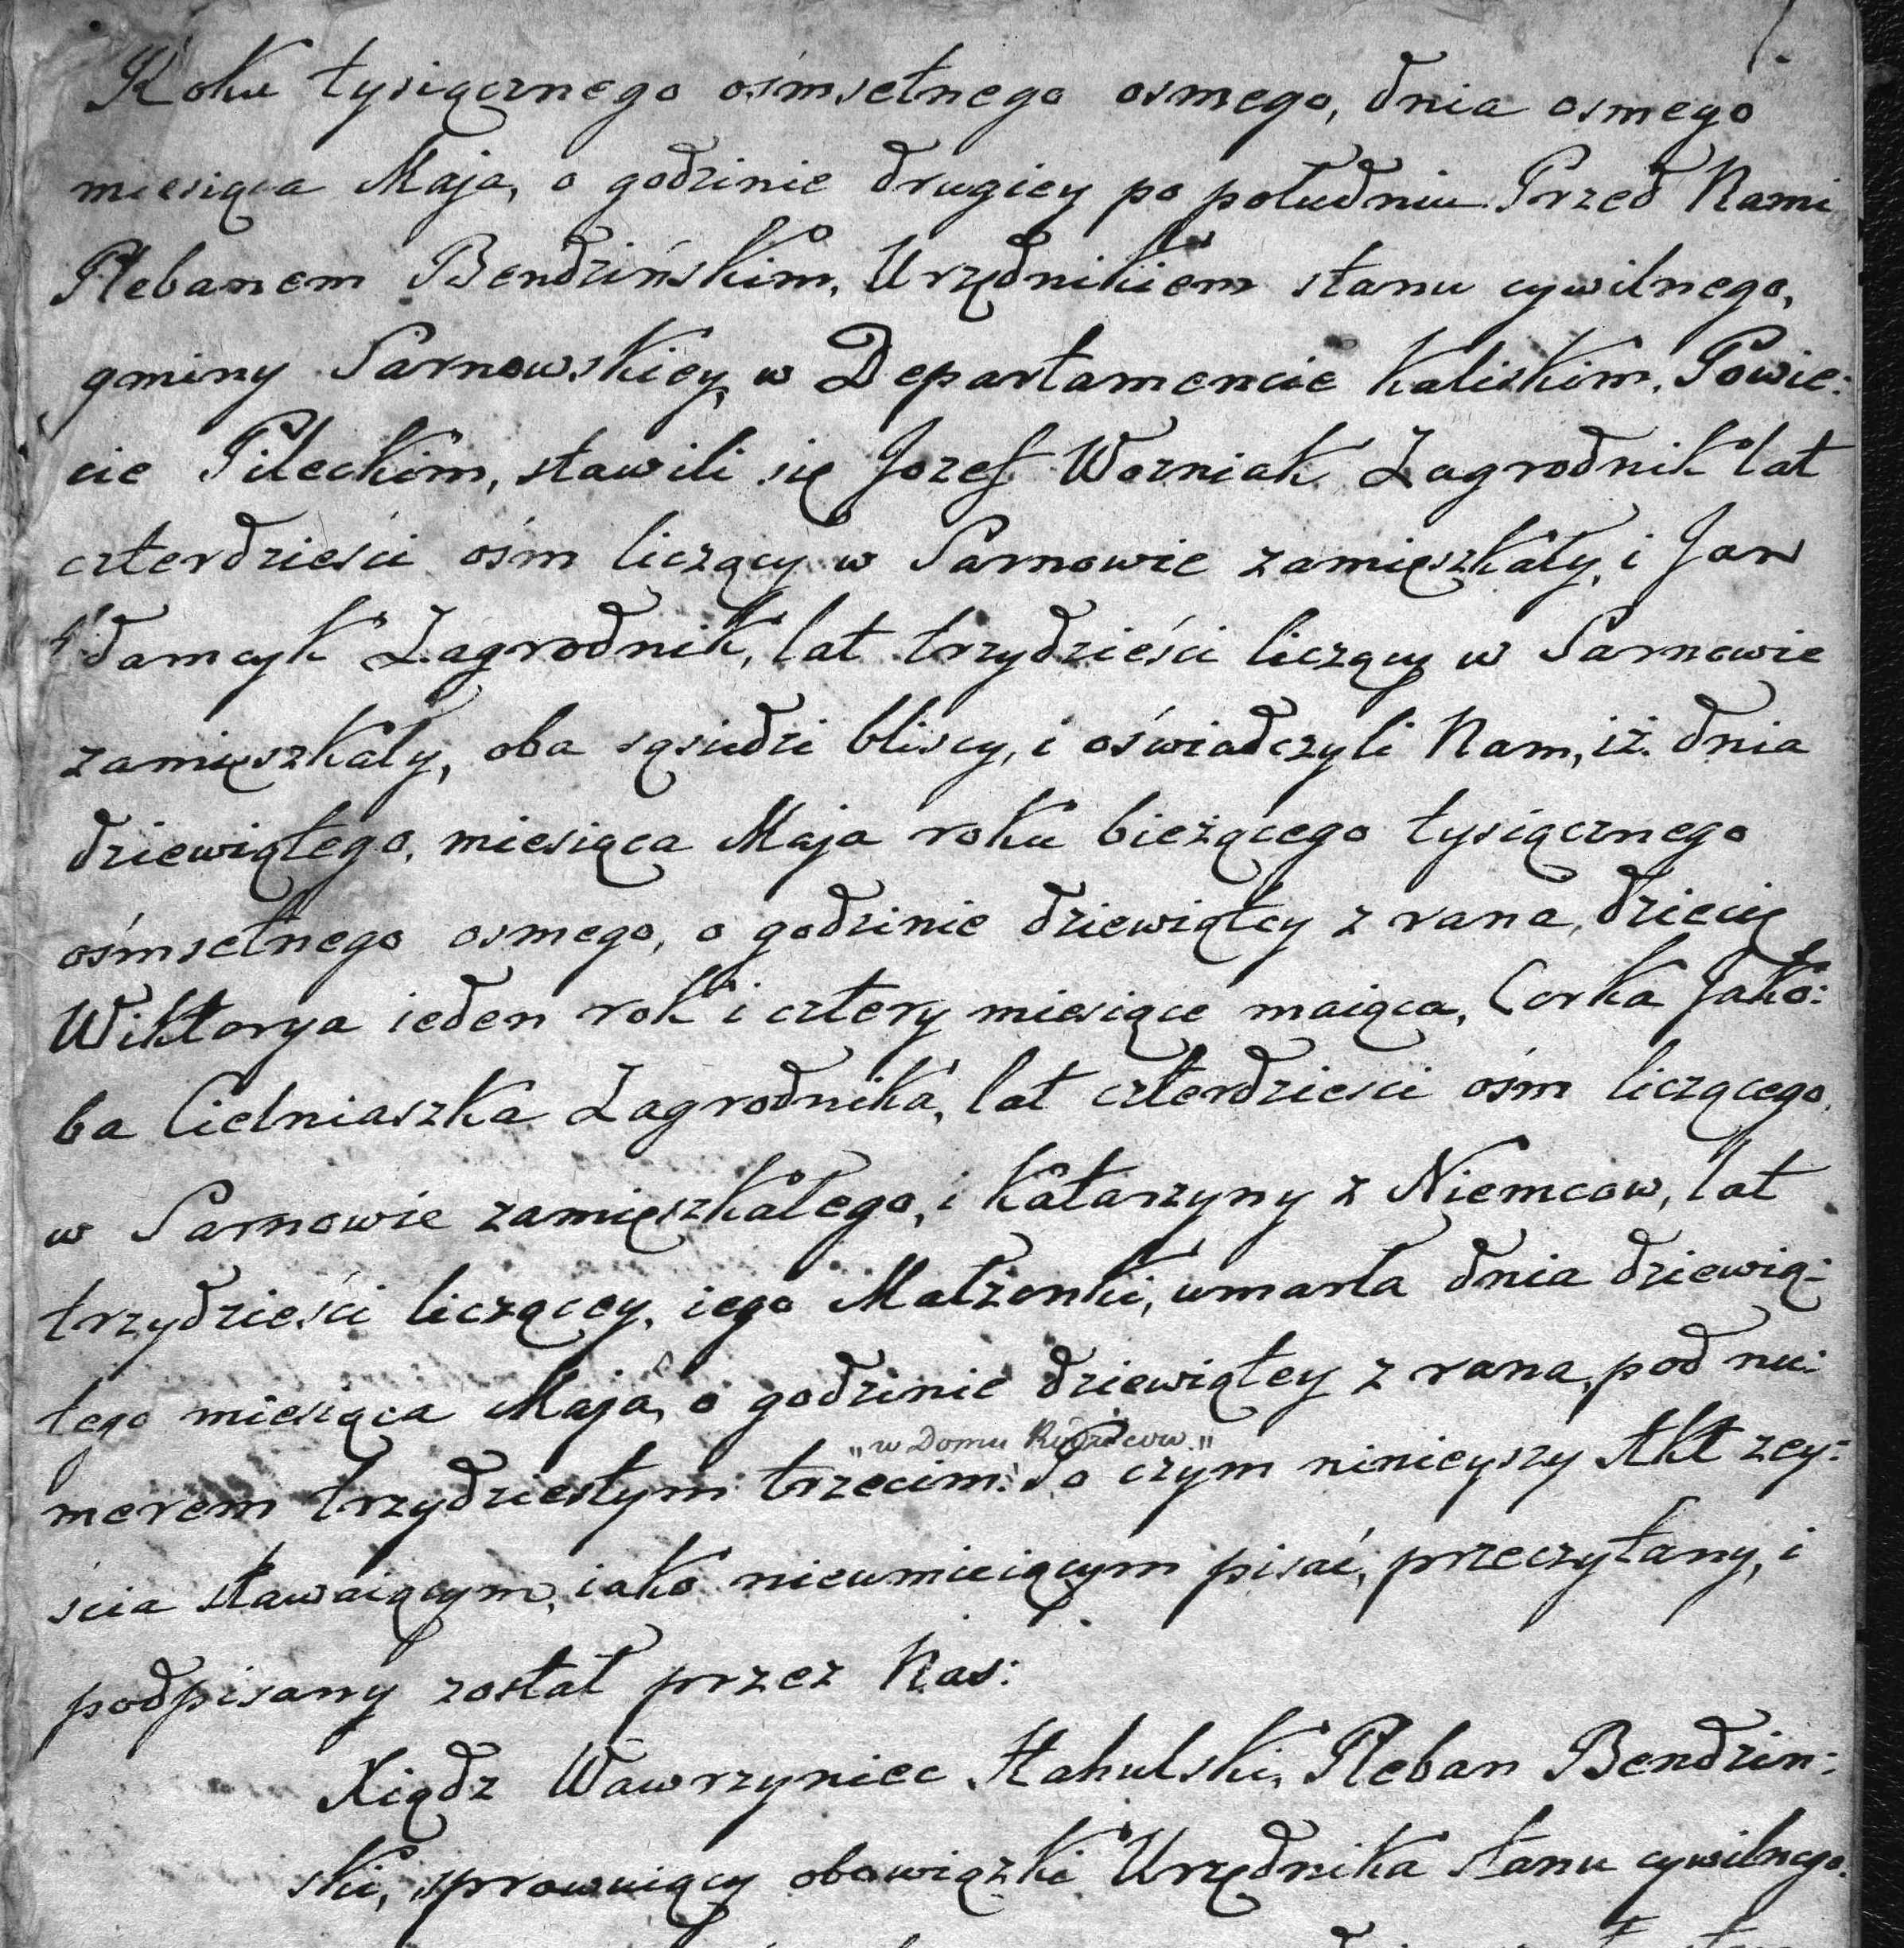 1.
Roku tysiącznego ośmsetnego osmego, dnia osmego
miesiąca Maja, o godzinie drugiey po południu. Przed Nami
Plebanem Bendzińskim, Urzędnikiem stanu cywilnego,
gminy Sarnowskiey, w Departamencie Kaliskim, Powie:
cie Pileckim, stawili się Jozef Wozniak Zagrodnik lat
czterdzieści ośm liczący w Sarnowie zamięszkały, i Jan
Adamcyk Zagrodnik, lat trzydzieści liczący w Sarnowie
zamięszkały, oba sąsiedzi bliscy, i oświadczyli Nam, iż dnia
dziewiątego, miesiąca Maja roku bieżącego tysiącznego
ośmsetnego osmego, o godzinie dziewiątey z rana, dziecię
Wiktorya ieden rok i cztery miesiące maiąca, Corka Jako:
ba Cielniaszka Zagrodnika, lat czterdziesci ośm liczącego,
w Sarnowie zamięszkałego, i Katarzyny z Niemcow, lat
trzydzieści liczącey, iego Małzonki, umarła dnia dziewią:
tego miesiąca Maja, o godzinie dziewiątey z rana, pod nu:
„w Domu Rodzicow."
merem trzydziestym trzecim: Po czym ninieyszy Akt zey:
ścia stawaiącym, iako nieumieiącym pisać, przeczytany, i
podpisany został przez Nas:
Xiądz Wawrzyniec Stahulski, Pleban Bendzin:
ski, sprawuiący obowiązki Urzędnika stanu cywilnego.